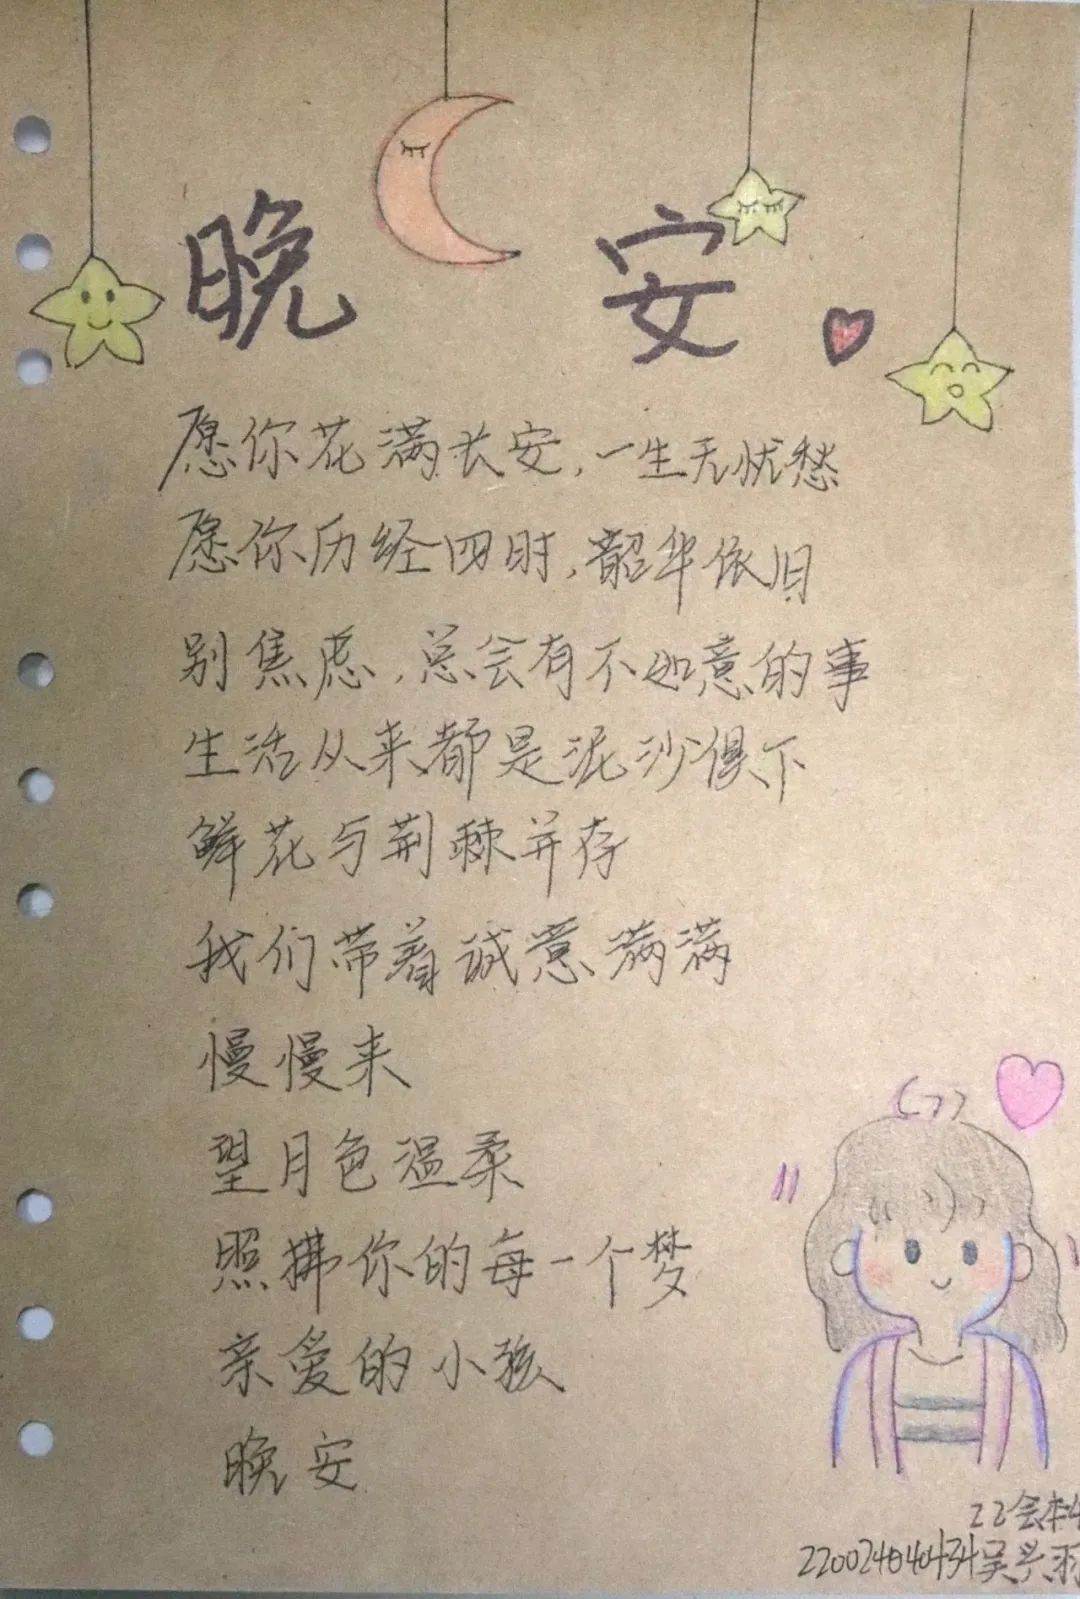 晚安
愿你花满长安,一生无忧愁
愿你历经四时,韶华依旧
别焦虑,总会有不如意的事
生活从来都是泥沙俱下
鲜花与荆棘并存
我们带着诚意满满
慢慢来
望月色温柔
照拂你的每一个梦
亲爱的小孩
晚安
22会本
吴兴羽